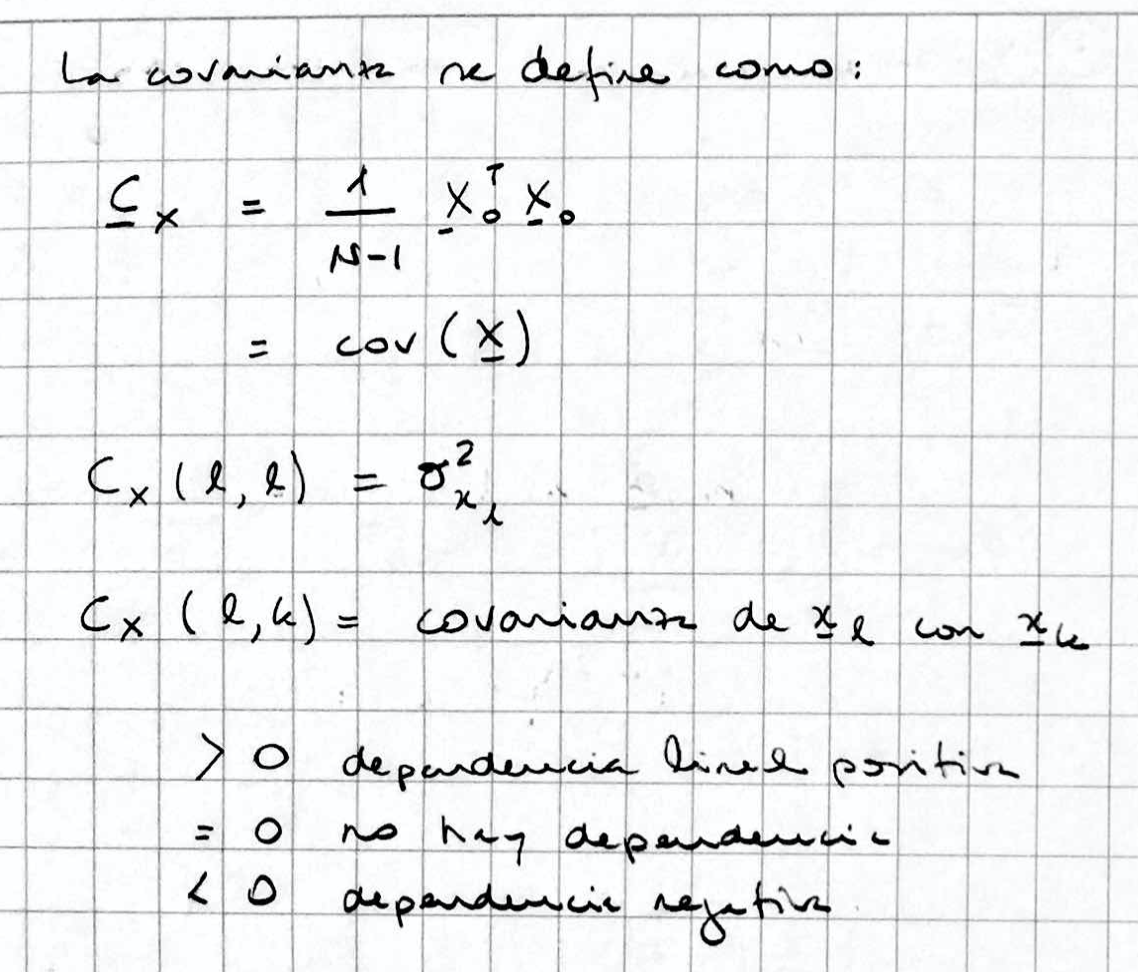 La covarianza se define como:
C̲ₓ = 1/(N-1) X̲₀ᵀ X̲₀
= cov(X̲)
Cₓ(l,l) = σ²ₓₗ
Cₓ(l,k) = covarianza de x̲ₗ con x̲ₖ
> 0 dependencia lineal positiva
= 0 no hay dependencia
< 0 dependencia negativa